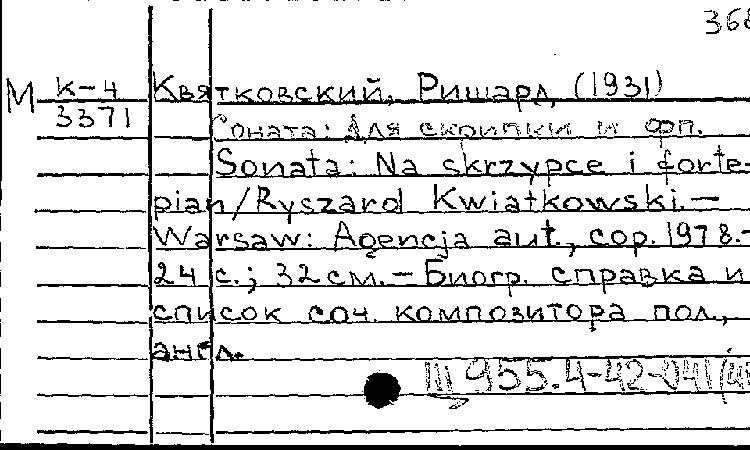 368
М К-4
3371
Квятковский, Ришард (1931)
Соната: Для скрипки и фп.
Sonata: Na skrzypce i forte-
pian/Ryszard Kwiatkowski.—
Warsaw: Agencja aut., cop. 1978.-
24 с.; 32 см.— Биогр. справка и
список соч. композитора пол.,
англ.
Щ 955.4-42-041